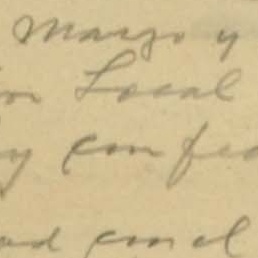 Marzo y
on Local
y con fe
ad con el